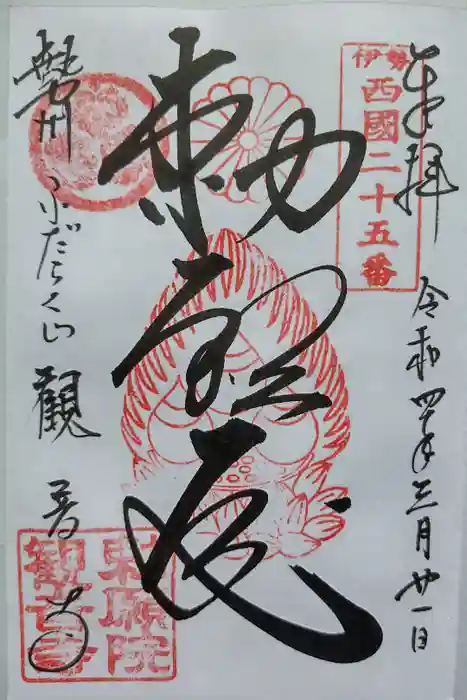 奉拝
伊勢
西國二十五番
令和四年三月廿一日
勅願殿
勢州ふだらく山 觀音寺
勅願院
観音寺